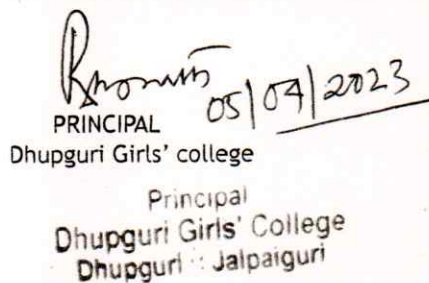 05/04/2023
PRINCIPAL
Dhupguri Girls' college
Principal
Dhupguri Girls' College
Dhupguri :: Jalpaiguri